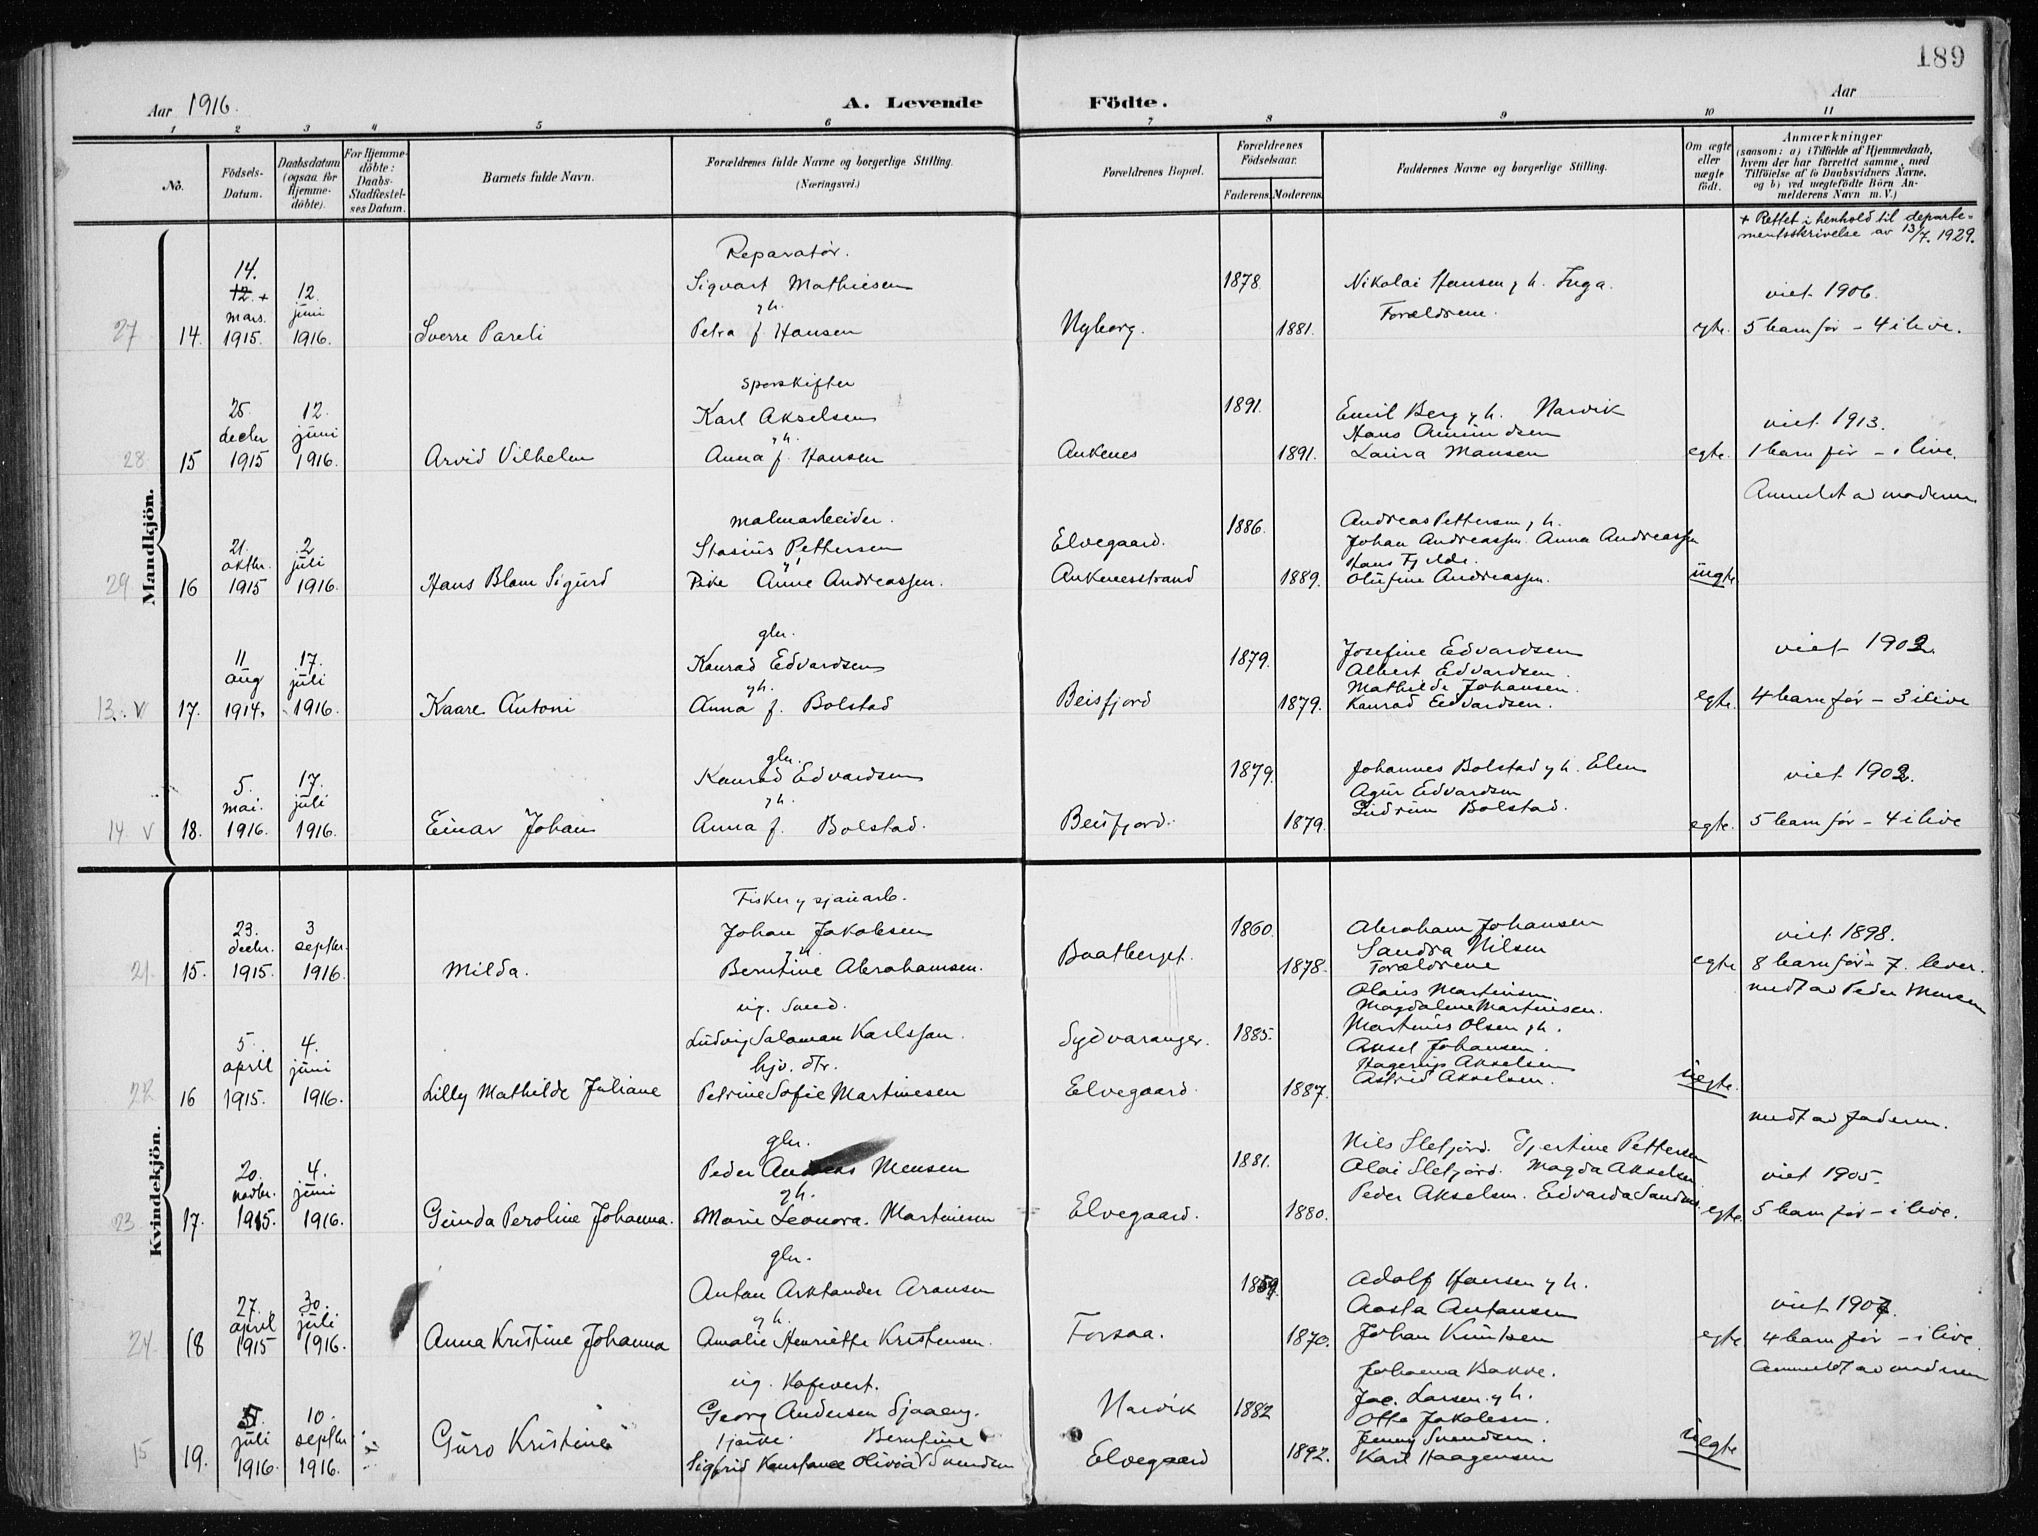 189
Aar 1916.
A. Levende Födte.
Aar
1 2 3 4 5 6 7 8 9 10 11
No.
Födsels-Datum.
Daabsdatum (ogsaa for Hjemme-döbte).
For Hjemme-döbte: Daabs-Stadfæstel-ses Datum.
Barnets fulde Navn.
Forældrenes fulde Navne og borgerlige Stilling. (Næringsvei.)
Forældrenes Bopæl.
Forældrenes Födselsaar.
Faderens. Moderens.
Faddernes Navne og borgerlige Stilling.
Om ægte eller uægte födt.
Anmærkninger (saasom: a) i Tilfælde af Hjemmedaab, hvem der har forrettet samme, med Tilföielse af to Daabsvidners Navne, og b) ved uægtefödte Börn An-melderens Navn m. V.)
+ Rettet i henhold til departe-
mentsskrivelse av 13/7. 1929.
Mandkjön.
Reparatör.
14.
12. + 12. Sigvart Mathiesen 1878. Nikolai Hansen y h. Inga. viet 1906.
mars. juni y h. Forældrene.
27 14. 1915. 1916. Sverre Pareli Petra f. Hansen Nyborg. 1881. egte. 5 barn för - 4 i live.
Sporskifter
25. 12. Karl Akselsen 1891. Emil Berg y h. Narvik viet 1913.
decbr juni y h. Hans Amundsen
28. 15 1915 1916. Arvid Vilhelm Anna f. Hansen Ankenes 1891. Laura Mansen egte. 1 barn för - i live.
Anmeldt av moderen
malmarbeider. Andreas Pettersen y h.
21. 2 Stasius Pettersen Elvegaard. 1886. Johan Andreassen. Anna Andreassen
oktbr. juli y Hans Fjelde.
29 16 1915 1916. Hans Blom Sigurd Pike Anne Andreassen. Ankenesstrand 1889. Olufine Andreassen. uegte
gbr.
11 17. Konrad Edvardsen 1879. Josefine Edvardsen viet 1902.
aug juli y h. Albert Edvardsen.
Mathilde Johansen.
13. v 17. 1914. 1916. Kaare Antoni Anna f. Bolstad Beisfjord 1879. Konrad Edvardsen. egte. 4 barn för - 3 i live
gbr.
5. 17. Konrad Edvardsen 1879. Johannes Bolstad y h. Elen viet 1902.
mai. juli y h. Agur Edvardsen
14. v 18. 1916. 1916. Einar Johan Anna f. Bolstad. Beisfjord. 1879. Gudrun Bolstad. egte. 5 barn för - 4 i live
Kvindekjön.
Fisker y sjauarb.
23. 3 Johan Jakobsen 1860. Abraham Johansen viet 1898.
decbr. septbr. y h. Sandra Nilsen
21. 15. 1915. 1916. Milda. Berntine Abrahamsen. Baatberget. 1878. Forældrene egte 8 barn för - 7. lever.
ug. Svend. Olaus Martinsen. medt av Peder Mensen
Magdalene Martinsen.
5. 4. Ludvig Salamon Karlsson. Sydvaranger. 1885. Martinus Olsen y h.
april juni hjv. dtr. Aksel Johansen.
Hagerup Akselsen
22 16 1915. 1916. Lilly Mathilde Juliane Petrine Sofie Martinesen Elvegaard. 1887. Astrid Akselsen. uegte.
medt av faderen.
gbr. Nils Slefjord. Gjertine Pettersen
20. 4. Peder Andreas Mensen 1881. Alai Slefjord. Magda Akselsen viet 1905.
novbr. juni y h. Peder Akselsen. Edvarda
23 17. 1915. 1916. Gunda Peroline Johanna. Marie Leonora. Martinesen Elvegaard. 1880. egte. 5 barn för - i live.
gbr.
27. 30. Anton Arktander Aronsen 1859. Adolf Hansen y h. viet 1907.
april juli y h. Aasta Antonsen
24. 18 1915 1916. Anna Kristine Johanna Amalie Henriette Kristensen. Forsaa. 1870. Johan Knutsen egte. 4 barn för - i live.
ug. Kafevert. Johanna Bakke. anmeldt av moderen
31. 10. Georg Andersen Sjaaeng. Narvik 1882 Jac. Larsen. y h.
juli septbr Berntine Otto Jakobsen.
Jenny Svendsen.
15 19. 1916. 1916. Guro Kristine Sigfrid Konstance Olivia Svendsen Elvegaard 1892. Karl Haagensen uegte